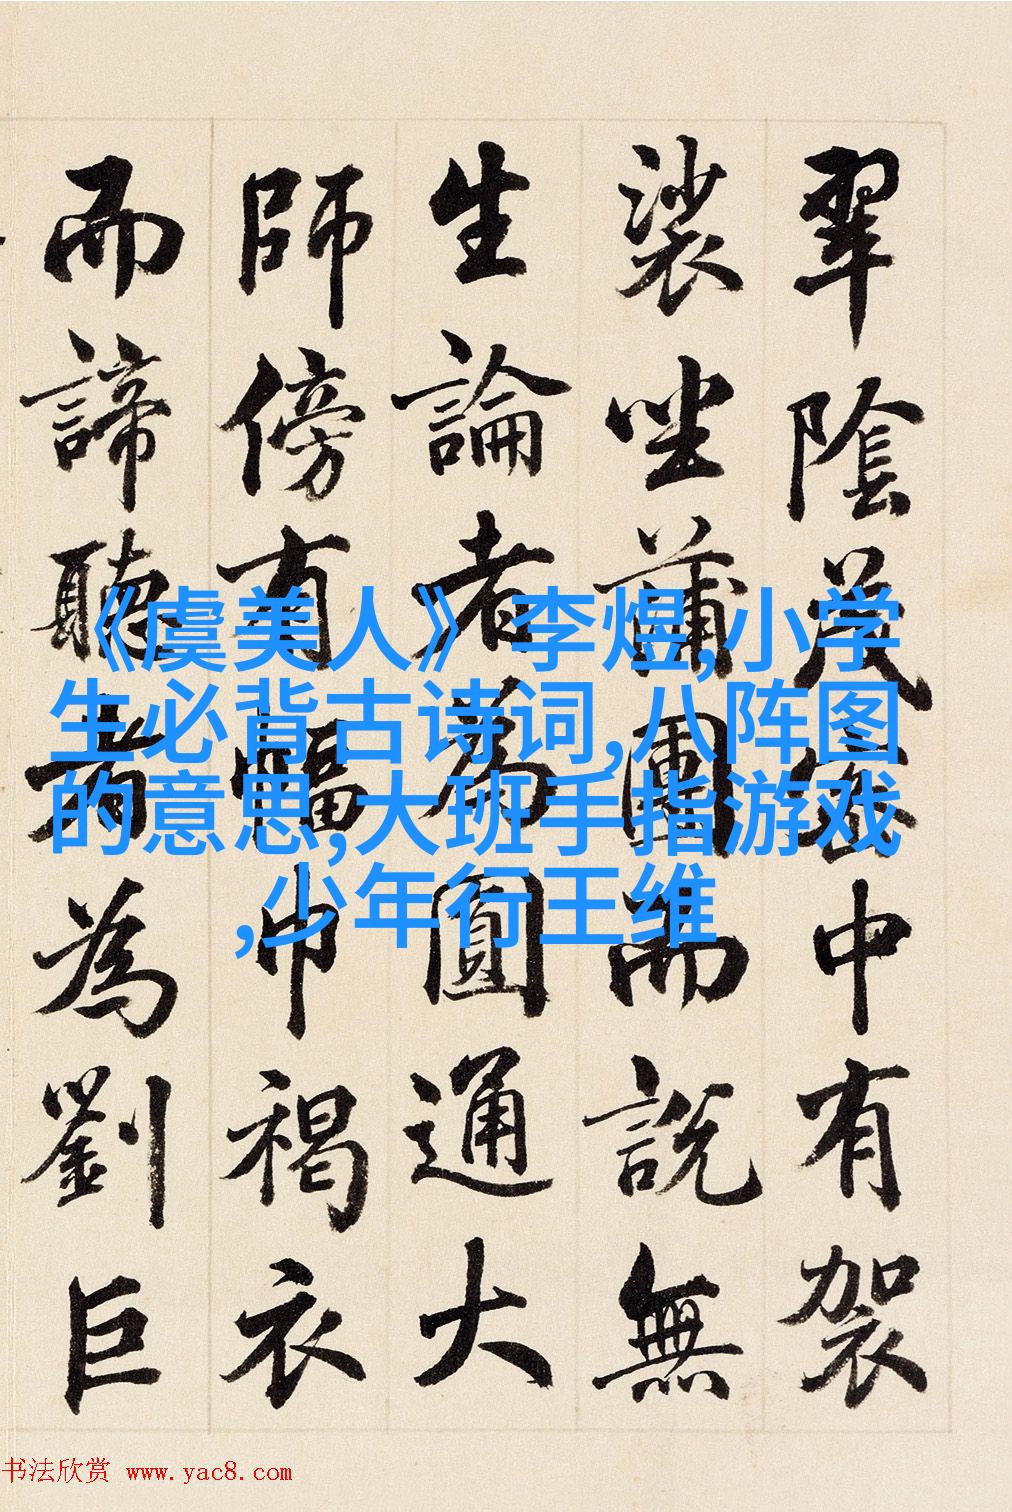 翠陰茂密中有袈
裟坐蒲團而說無
生論者為圓通大
師傍有幅巾褐衣
而諦聽者為劉巨
《虞美人》李煜,小学
生必背古诗词,八阵图
的意思,大班手指游戏
,少年行王维
书法欣赏 www.yac8.com